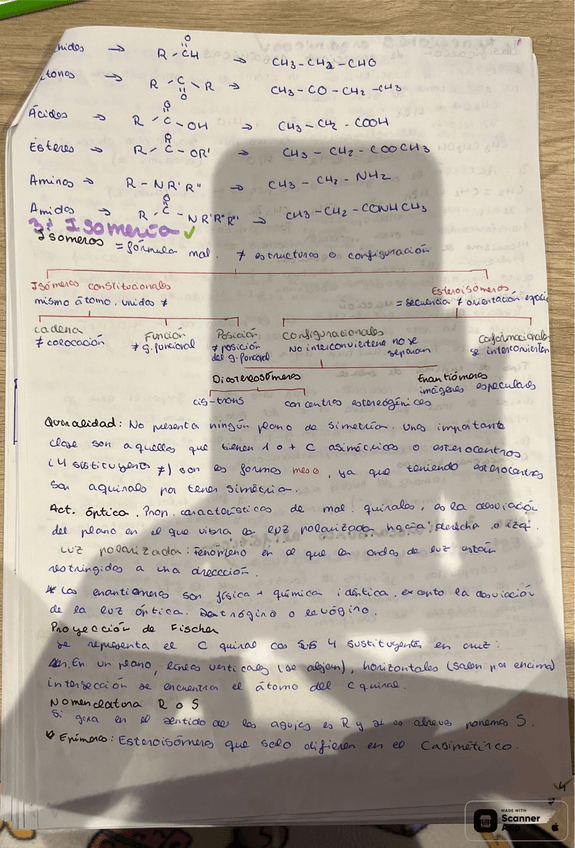 hidos → R - C(=O)H → CH3-CH2-CHO
tonas → R - C(=O) - R → CH3-CO-CH2-CH3
Ácidos → R - C(=O) - OH → CH3-CH2-COOH
Ésteres → R - C(=O) - OR' → CH3-CH2-COOCH3
Aminas → R-NR'R" → CH3-CH2-NH2
Amidas → R-C(=O)-NR'R"R''' → CH3-CH2-CONHCH3
Isomería ✓
Isómeros = fórmula mol. ≠ estructuras o configuración
Isómeros constitucionales Esteroisómeros
mismo átomo, unidos ≠ = secuencia ≠ orientación espacia
cadena Función Posición Configuracionales Conformacionales
≠ colocación ≠ g. funcional ≠ posición del g. funcional No interconvierten no se separan se interconvierten
Diastereosómeros Enantiómeros
cis-trans con centros estereogénicos imágenes especulares
Quiralidad: No presenta ningún plano de simetría. Unas importante
clase son aquellas que tienen 1 o + C asimétricos o esterocentros
(4 sustituyentes ≠) son las formas meso, ya que teniendo esterocentros
son aquirales por tener simetría.
Act. óptica. Prop. características de mol. quirales, es la desviación
del plano en el que vibra la luz polarizada hacia derecha o izq.
Luz polarizada: fenómeno en el que las ondas de luz están
restringidas a una dirección.
* Los enantiómeros son física + química idéntica, excepto la desviación
de la luz óptica. Dextrógino o levógino.
Proyección de Fischer
Se representa el C quiral con sus 4 sustituyentes en cruz:
En un plano, líneas verticales (se alejan), horizontales (salen por encima)
intersección se encuentra el átomo del C quiral.
Nomenclatura R o S
Si gira en el sentido de las agujas es R y si es al revés ponemos S.
Epímeros: Esteroisómeros que solo difieren en el C asimétrico.
4
MADE WITH
Scanner
App